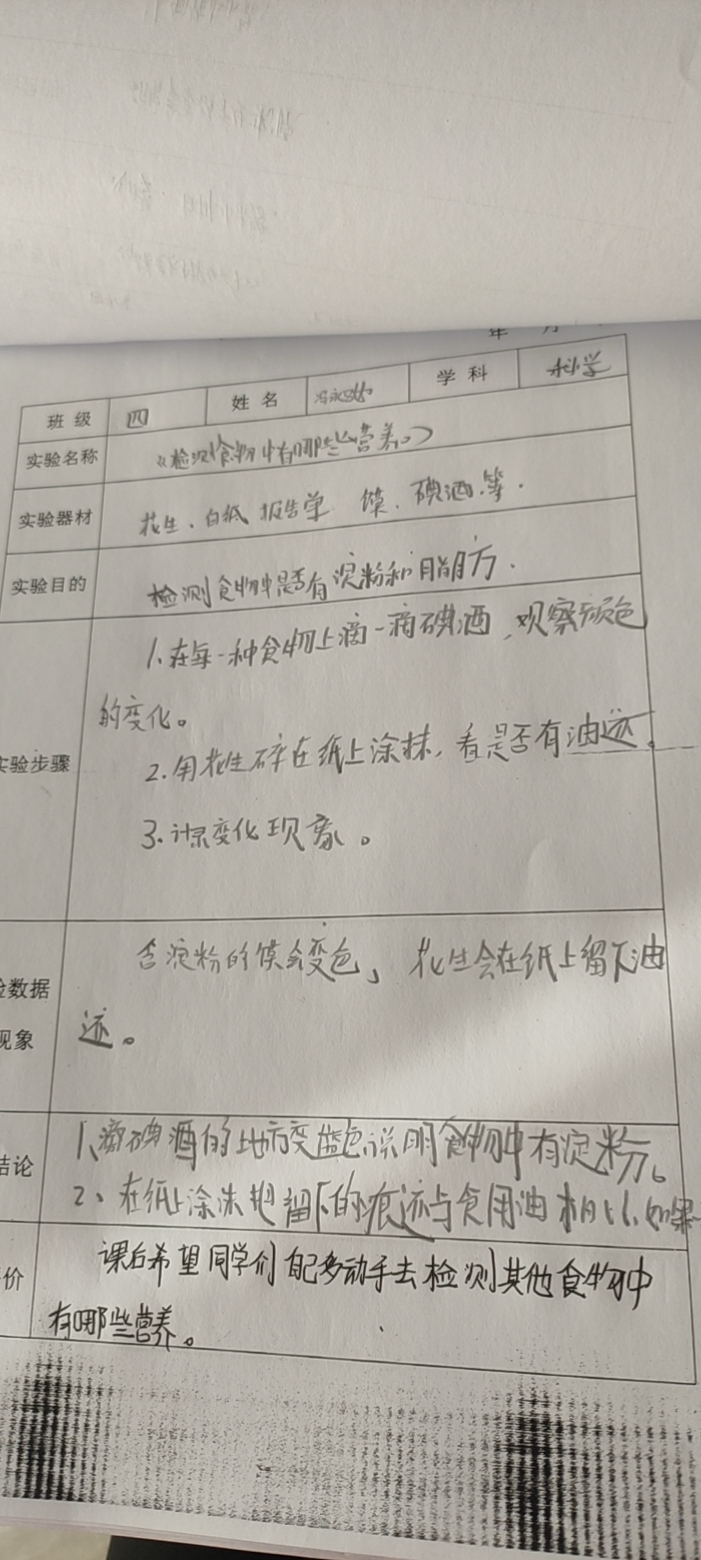 年 月
班级 四 姓名 学科 科学
实验名称 《检测食物中有哪些营养》
实验器材 花生、白纸 报告单 馍、碘酒.等.
实验目的 检测食物中是否有淀粉和脂肪方.
1.在每一种食物上滴一滴碘酒,观察颜色
的变化。
实验步骤
2.用花生碎在纸上涂抹,看是否有油迹。
3.记录变化现象。
含淀粉的馍会变色, 花生会在纸上留下油
验数据
现象 迹。
1、滴碘酒的地方变蓝色说明食物中有淀粉。
结论
2、在纸上涂抹把留下的痕迹与食用油相比.如果
课后希望同学们自己多动手去检测其他食物中
价
有哪些营养。